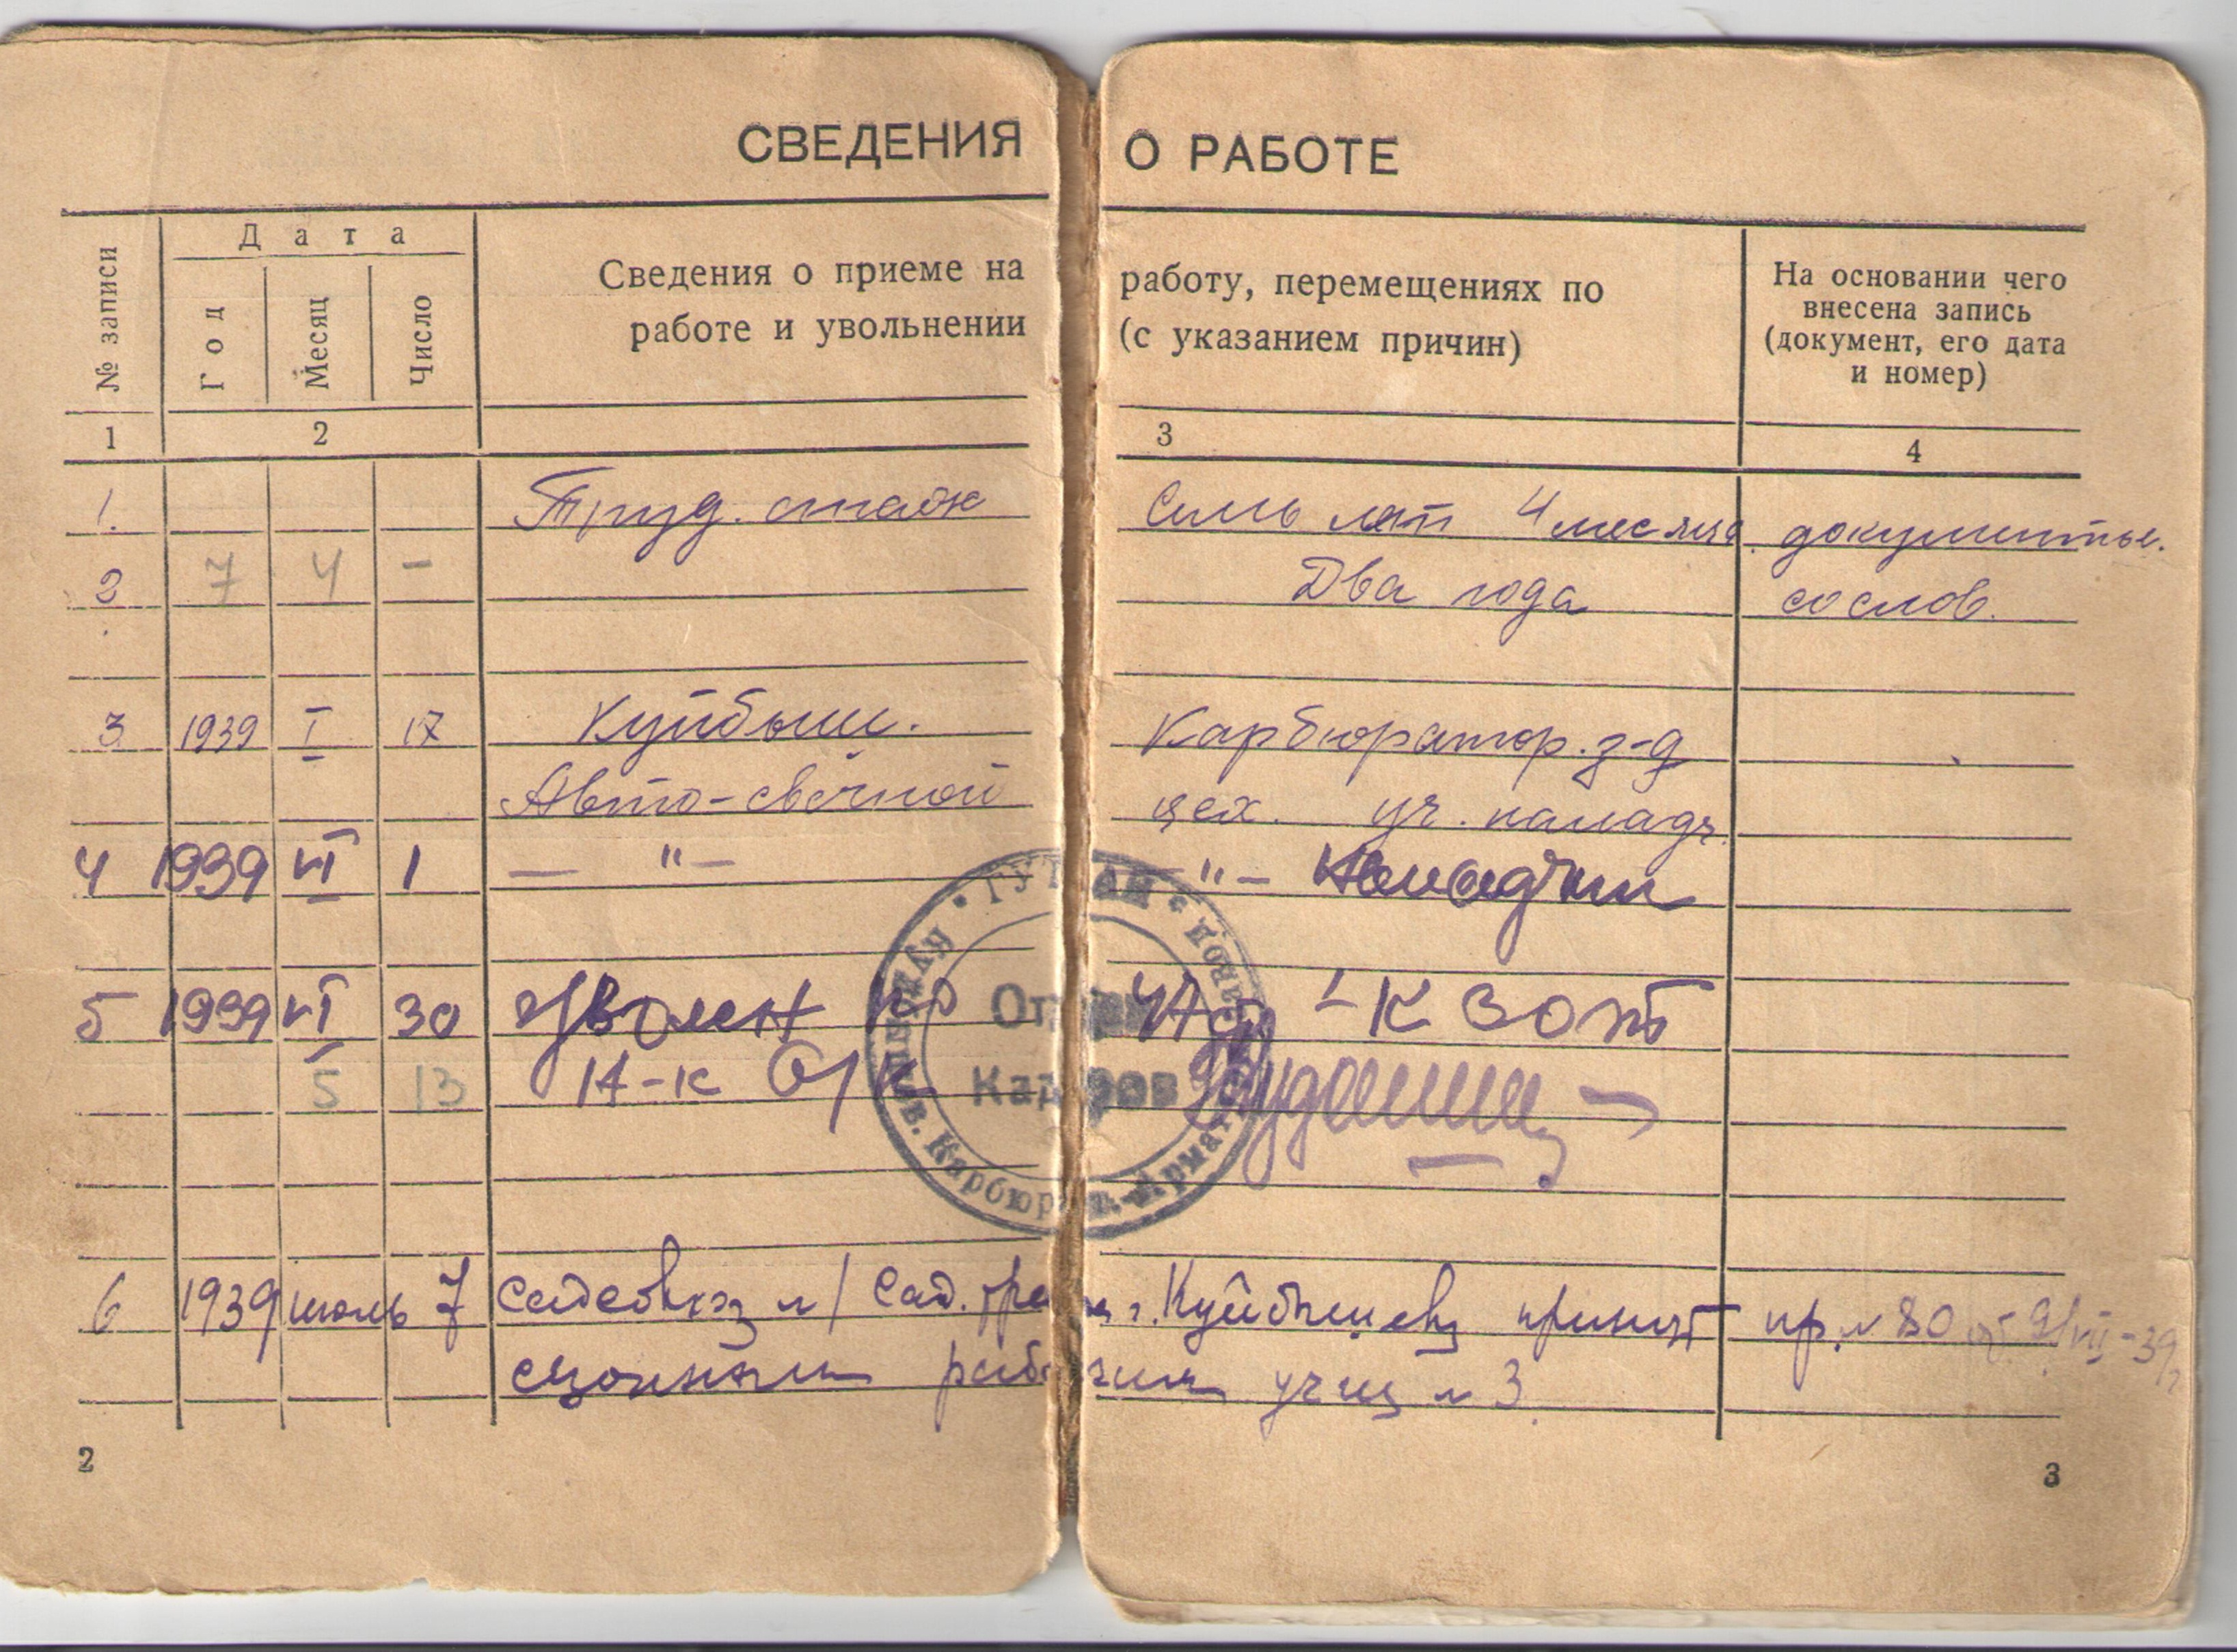 СВЕДЕНИЯ О РАБОТЕ
№ записи
Дата
Год
Месяц
Число
Сведения о приеме на работу, перемещениях по
работе и увольнении (с указанием причин)
На основании чего
внесена запись
(документ, его дата
и номер)
1 2 3 4
1. Труд. стаж Семь лет 4 месяца. документы.
2 7 4 - Два года со слов.
3 1939 I 17 Куйбыш. Карбюратор. з-д
Авто-свечной цех. уч. наладч.
4 1939 VI 1 — "— — "— Наладчик
5 1939 VI 30 Уволен по КЗОТ
5 13 Н-к О/К
Отдел
Кадров
Карбюр
6 1939 июль 7 г. Куйбышеву принят пр. № 80 от 9/VII-39г
рабочим № 3.
2
3